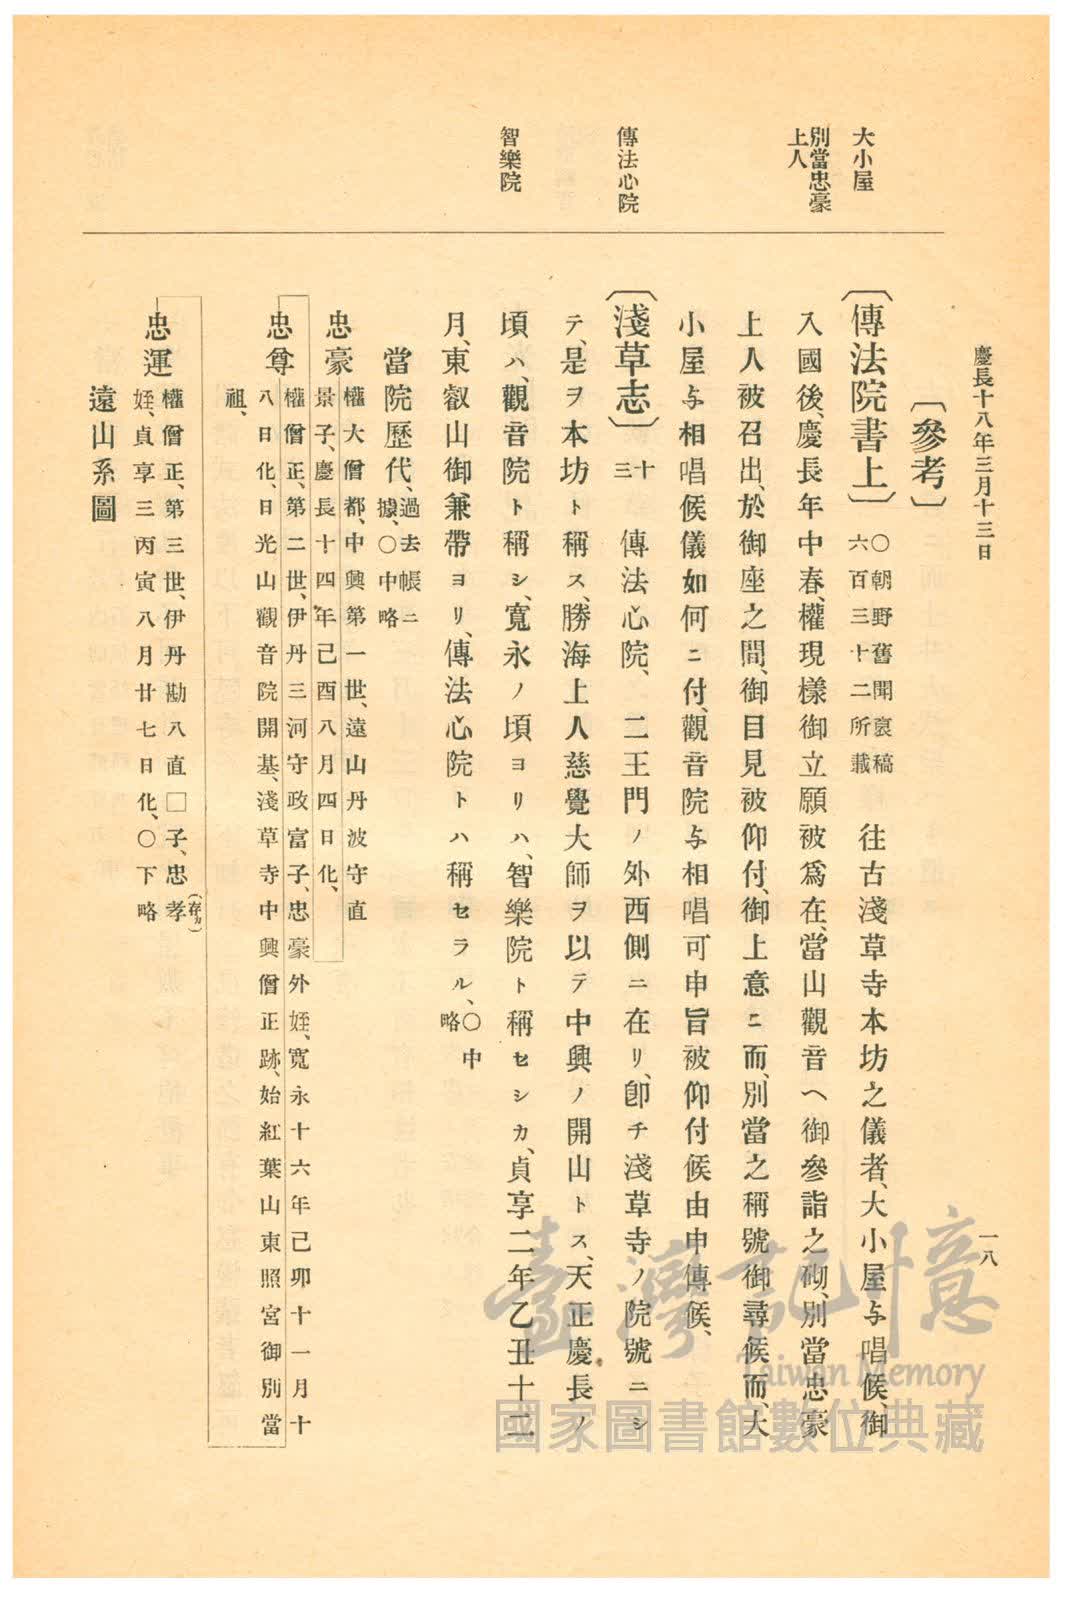 慶長十八年三月十三日
一八
大小屋
別當忠豪
上人
傳法心院
智樂院
〔參考〕
〔傳法院書上〕○朝野舊聞裒稿六百三十二所載 往古淺草寺本坊之儀者、大小屋与唱候、御
入國後、慶長年中春、權現樣御立願被爲在、當山觀音へ御參詣之砌、別當忠豪
上人被召出、於御座之間、御目見被仰付、御上意ニ而、別當之稱號御尋候而、大
小屋与相唱候儀如何ニ付、觀音院与相唱可申旨被仰付候由申傳候、
〔淺草志〕十三 傳法心院、二王門ノ外西側ニ在リ、卽チ淺草寺ノ院號ニシ
テ、是ヲ本坊ト稱ス、勝海上人慈覺大師ヲ以テ中興ノ開山トス、天正慶長ノ
頃ハ、觀音院ト稱シ、寬永ノ頃ヨリハ、智樂院ト稱セシカ、貞享二年乙丑十二
月、東叡山御兼帶ヨリ、傳法心院トハ稱セラル、○中略
當院歷代、過去帳ニ據、○中略
忠豪 權大僧都、中興第一世、遠山丹波守直
景子、慶長十四年己酉八月四日化、
忠尊 權僧正、第二世、伊丹三河守政富子、忠豪外姪、寬永十六年己卯十一月十
八日化、日光山觀音院開基、淺草寺中興僧正跡、始紅葉山東照宮御別當
祖、
忠運 權僧正、第三世、伊丹勘八直□子、忠孝(存カ)
姪、貞享三丙寅八月廿七日化、○下略
遠山系圖
臺灣記憶
Taiwan Memory
國家圖書館數位典藏